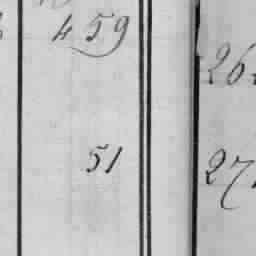 459
51
26
27